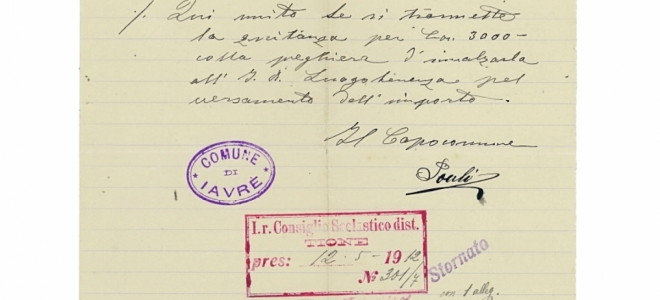 /. Qui unito se si trasmette
la quitanza per Cor. 3000-
colla preghiera d'innalzarla
all' I. R. Luogotenenza pel
versamento dell'importo.
Il Capocomune
Pouli
COMUNE
DI
IAVRÈ
I. r. Consiglio Scolastico dist.
TIONE
pres: 12-5-1912
№ 301/7
Stornato
con 1 alleg